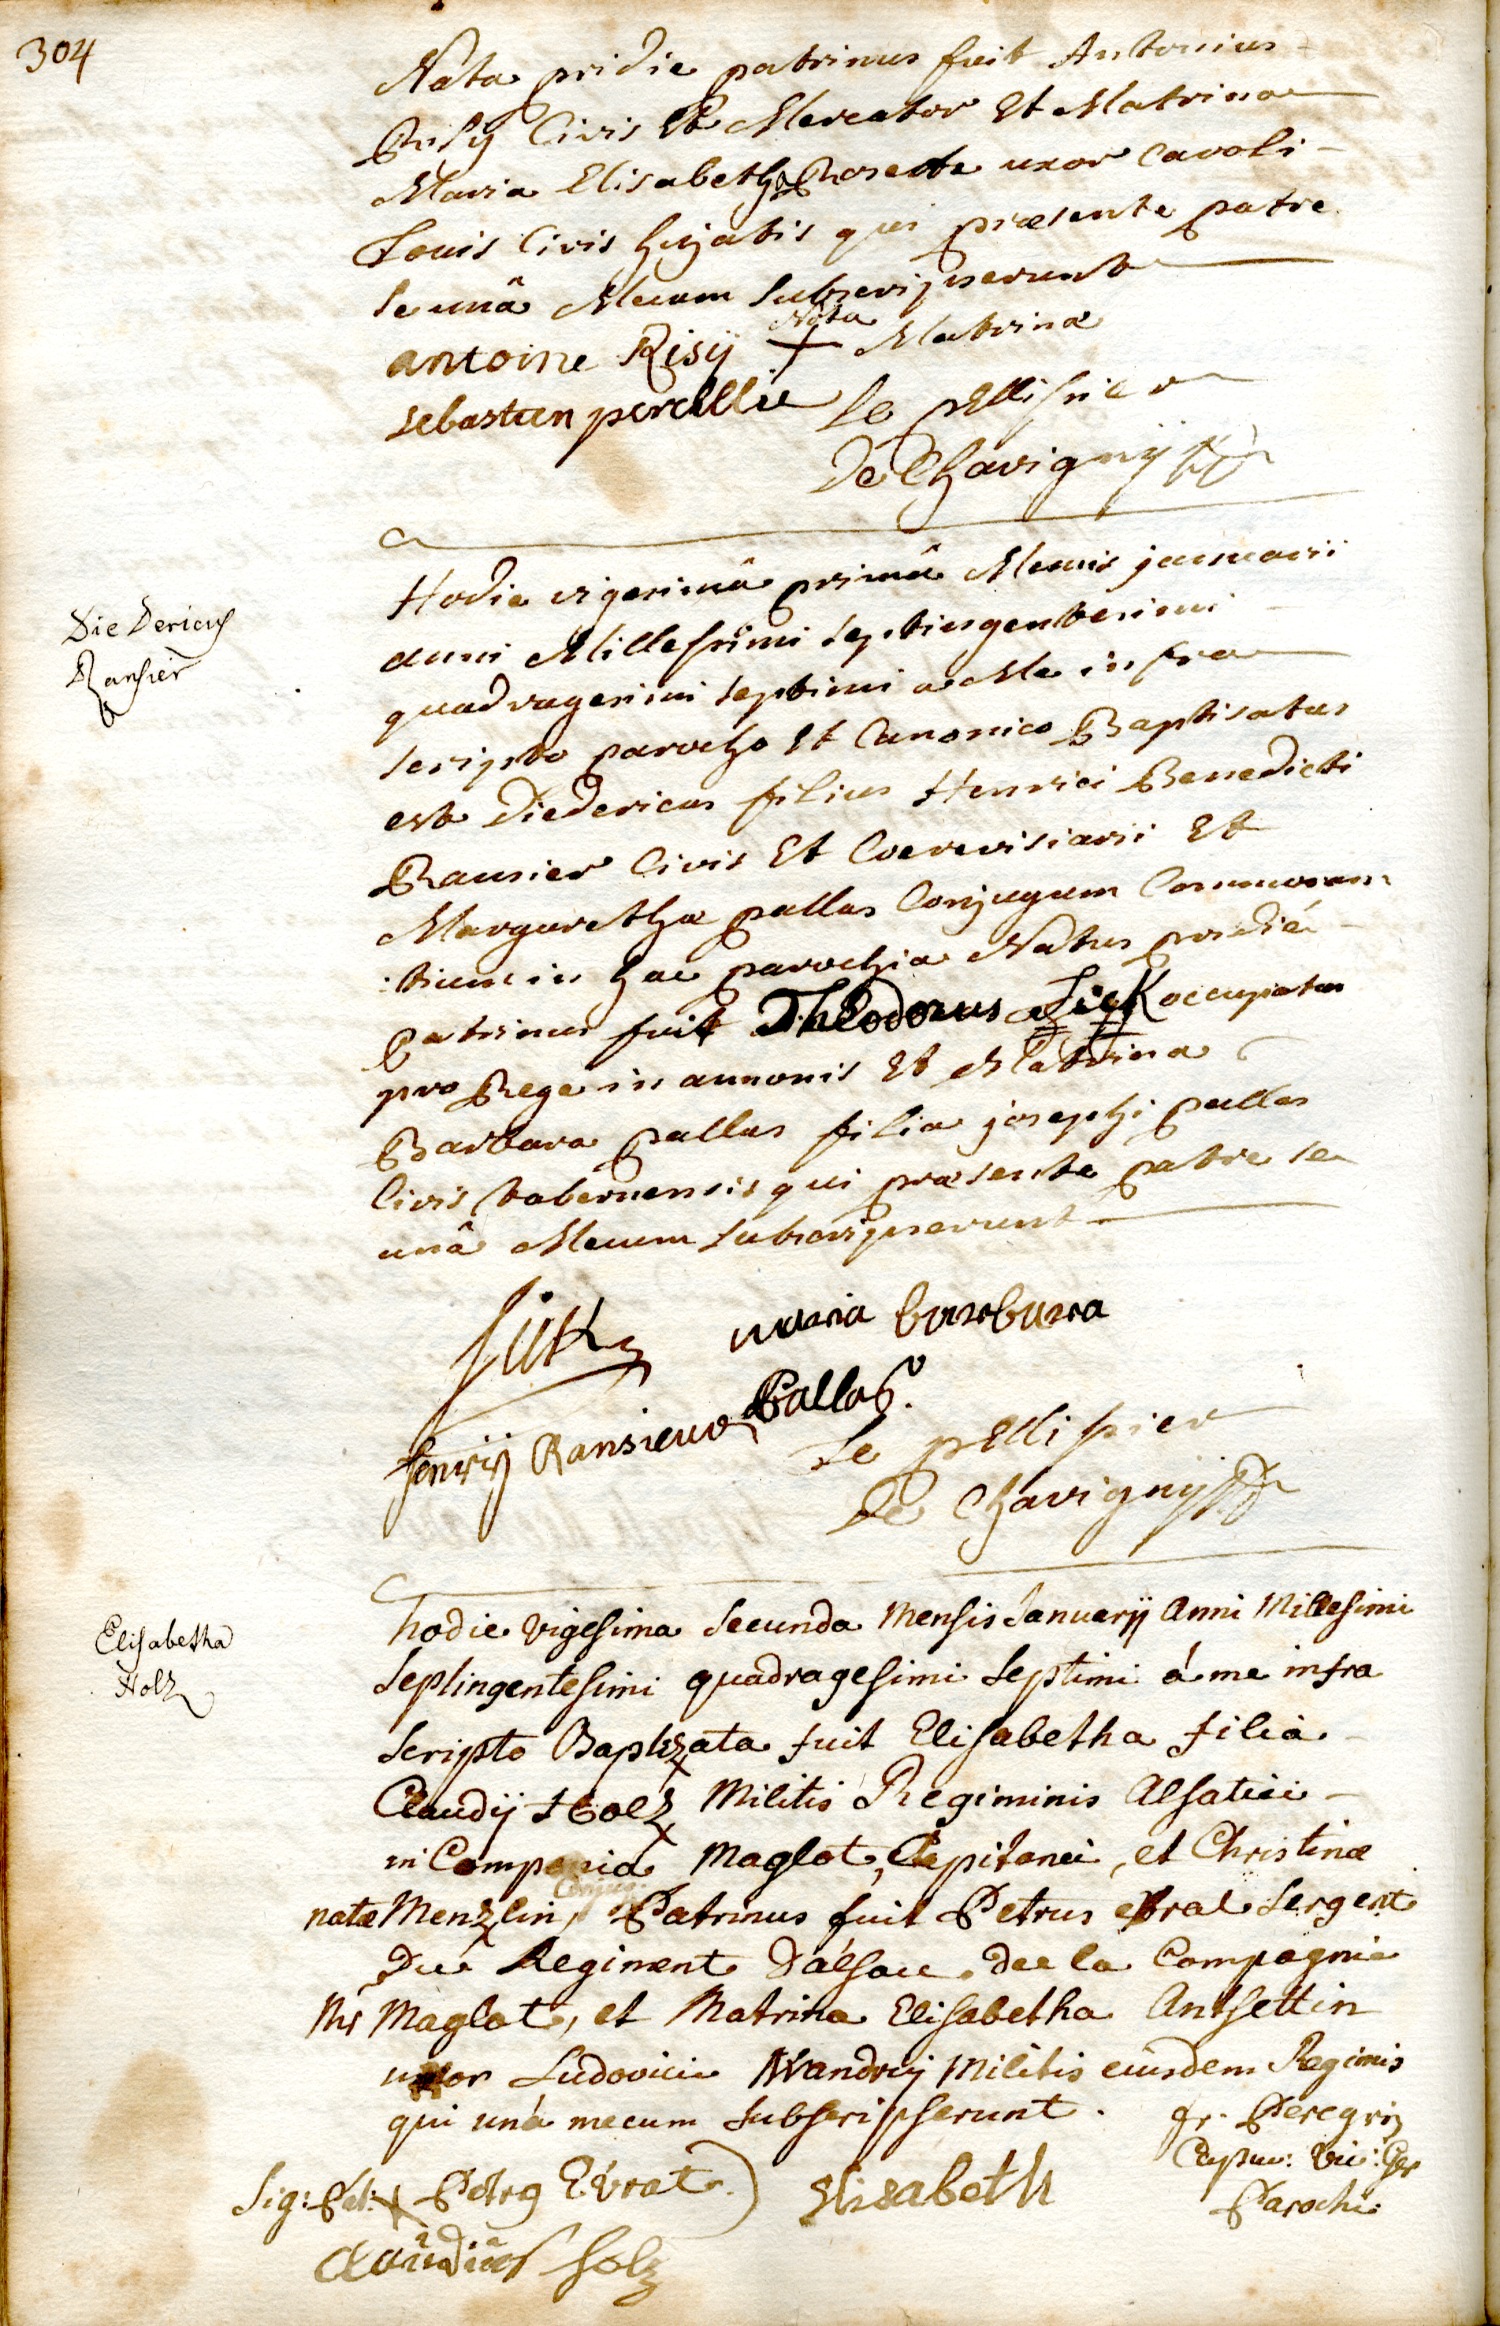 304
Nata pridie patrinus fuit Antonius
Risy Civis Et Mercator Et Matrina
Maria Elisabetha Rosette uxor Caroli
Louis Civis hujatis qui præsente patre
se unâ Mecum Subscripserunt
antoine Risÿ Nota + Matrinæ
sebastien percillie
Le pellissier
De Chavignÿ
Diedericus
Ransier
Hodie vigesimâ primâ Mensis januarii
anni Millesimi septingentesimi
quadragesimi septimi a Me infra
scripto parocho Et Canonico Baptisatus
est Diedericus filius Henrici Benedicti
Ransier Civis Et Coerevisiarii Et
Margarethæ pallas Conjugum Commoran
:tium in hac parochia Natus pridie
patrinus fuit Theodorus Lick occupatus
pro Rege in annonis Et Matrina
Barbara pallas filia josephi pallas
Civis tabernensis qui præsente patre se
unâ Mecum subscripserunt
Lick maria barbara
Pallas.
henrÿ Ransieur
Le pellissier
De Chavignÿ
Elisabetha
Holz
hodie vigesima secunda Mensis Januarÿ Anni Millesimi
Septingentesimi quadragesimi Septimi á me infra
Scripto Baptizata fuit Elisabetha filia
Claudÿ Holz Militis Regiminis Alsatici
in Compania Maglot, Capitanei, et Christinæ
natæ Menzlin, Conjug: Patrinus fuit Petrus evrat Sergent
Du Regiment D'alsace de la Compagnie
Mr Maglot, et Matrina Elisabetha Antsettin
uxor Ludovici Wandrÿ Militis eiusdem Regiminis
qui uná mecum Subscripserunt.
fr. Peregrin
Capuc: Vic: Ger
Parochi
Sig: Pet: + Petrg Evrat. Elisabeth
Claudius holz